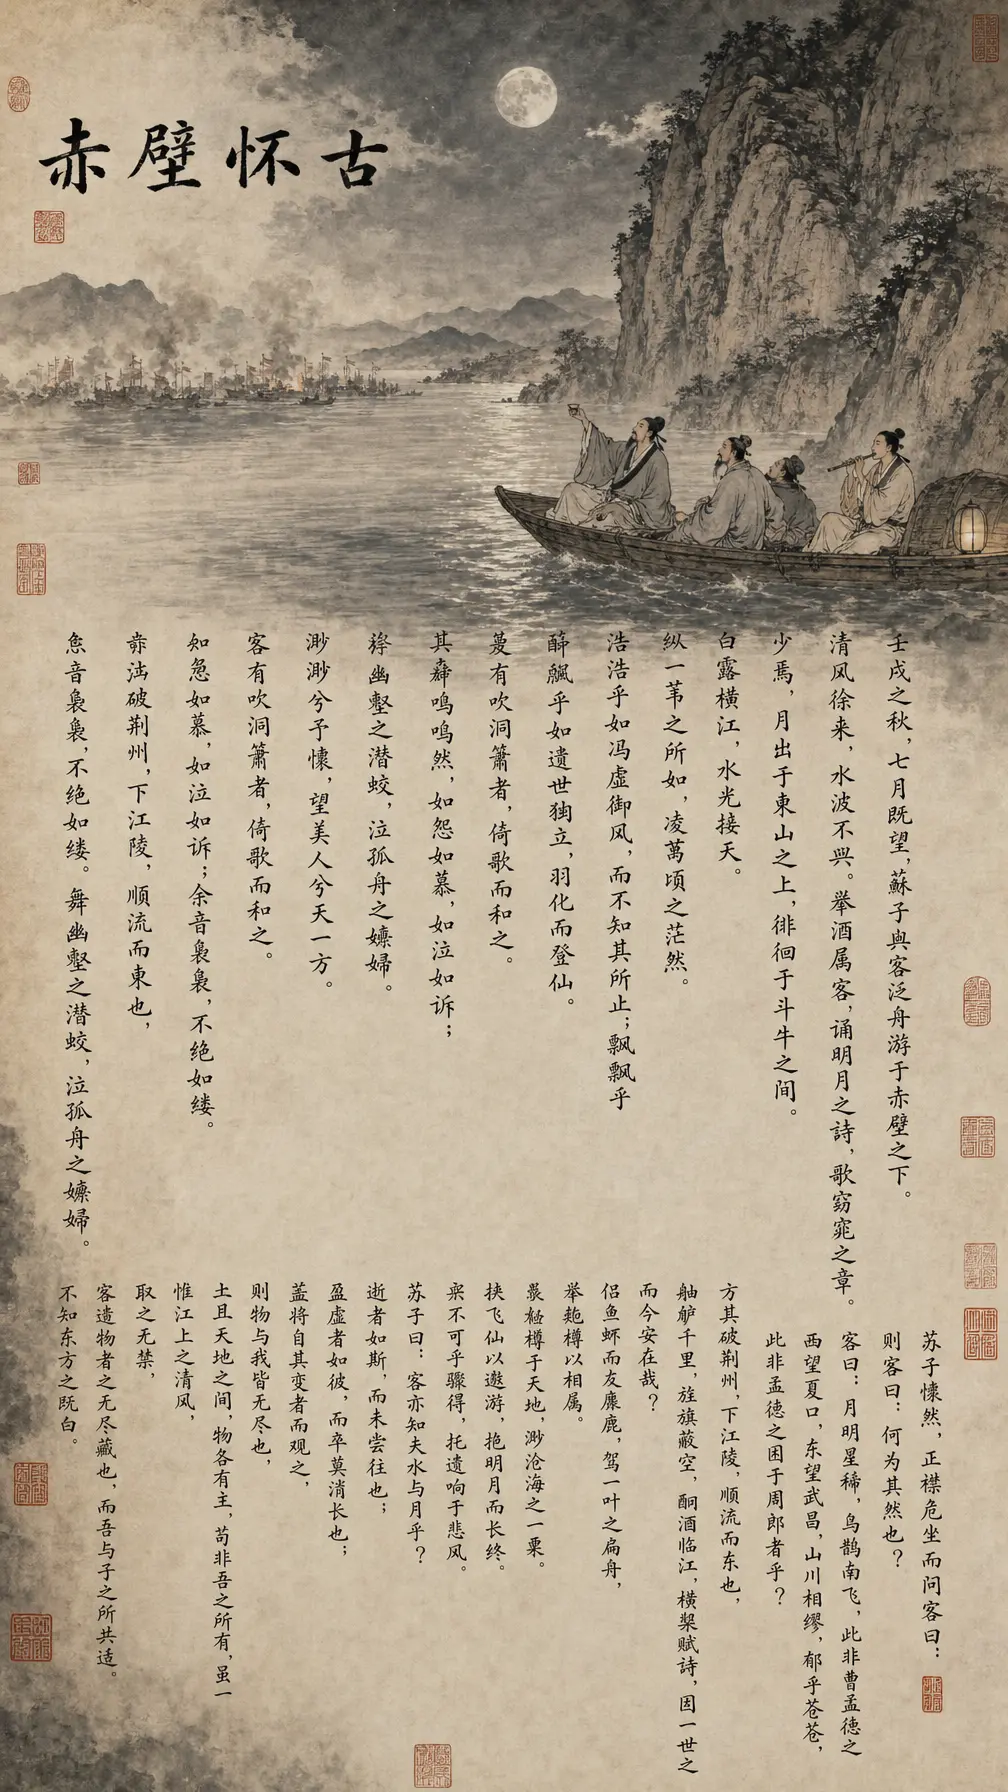 赤壁怀古
壬戌之秋，七月既望，蘇子與客泛舟游于赤壁之下。
清风徐来，水波不興。举酒属客，诵明月之詩，歌窈窕之章。
少焉，月出于東山之上，徘徊于斗牛之间。
白露横江，水光接天。
纵一苇之所如，凌萬顷之茫然。
浩浩乎如冯虚御风，而不知其所止；飘飘乎
乎如遗世独立，羽化而登仙。
有吹洞簫者，倚歌而和之。
其鸣鸣然，如怨如慕，如泣如诉；
幽壑之潜蛟，泣孤舟之嫠婦。
渺渺兮予懷，望美人兮天一方。
客有吹洞簫者，倚歌而和之。
知急如慕，如泣如诉；余音裊裊，不绝如缕。
破荆州，下江陵，顺流而東也，
音裊裊，不绝如缕。舞幽壑之潜蛟，泣孤舟之嫠婦。
苏子愀然，正襟危坐而问客曰：
则客曰：何为其然也？
客曰：月明星稀，乌鹊南飞，此非曹孟德之
西望夏口，东望武昌，山川相缪，郁乎苍苍，
此非孟德之困于周郎者乎？
方其破荆州，下江陵，顺流而东也，
舳舻千里，旌旗蔽空，酾酒临江，横槊赋詩，固一世之
而今安在哉？
侣鱼虾而友麋鹿，驾一叶之扁舟，
举匏樽以相属。
樽于天地，渺沧海之一粟。
挟飞仙以遨游，抱明月而长终。
不可乎骤得，托遗响于悲风。
苏子曰：客亦知夫水与月乎？
逝者如斯，而未尝往也；
盈虚者如彼，而卒莫消长也；
盖将自其变者而观之，
则物与我皆无尽也，
土且天地之间，物各有主，苟非吾之所有，虽一
惟江上之清风，
取之无禁，
客造物者之无尽藏也，而吾与子之所共适。
不知东方之既白。